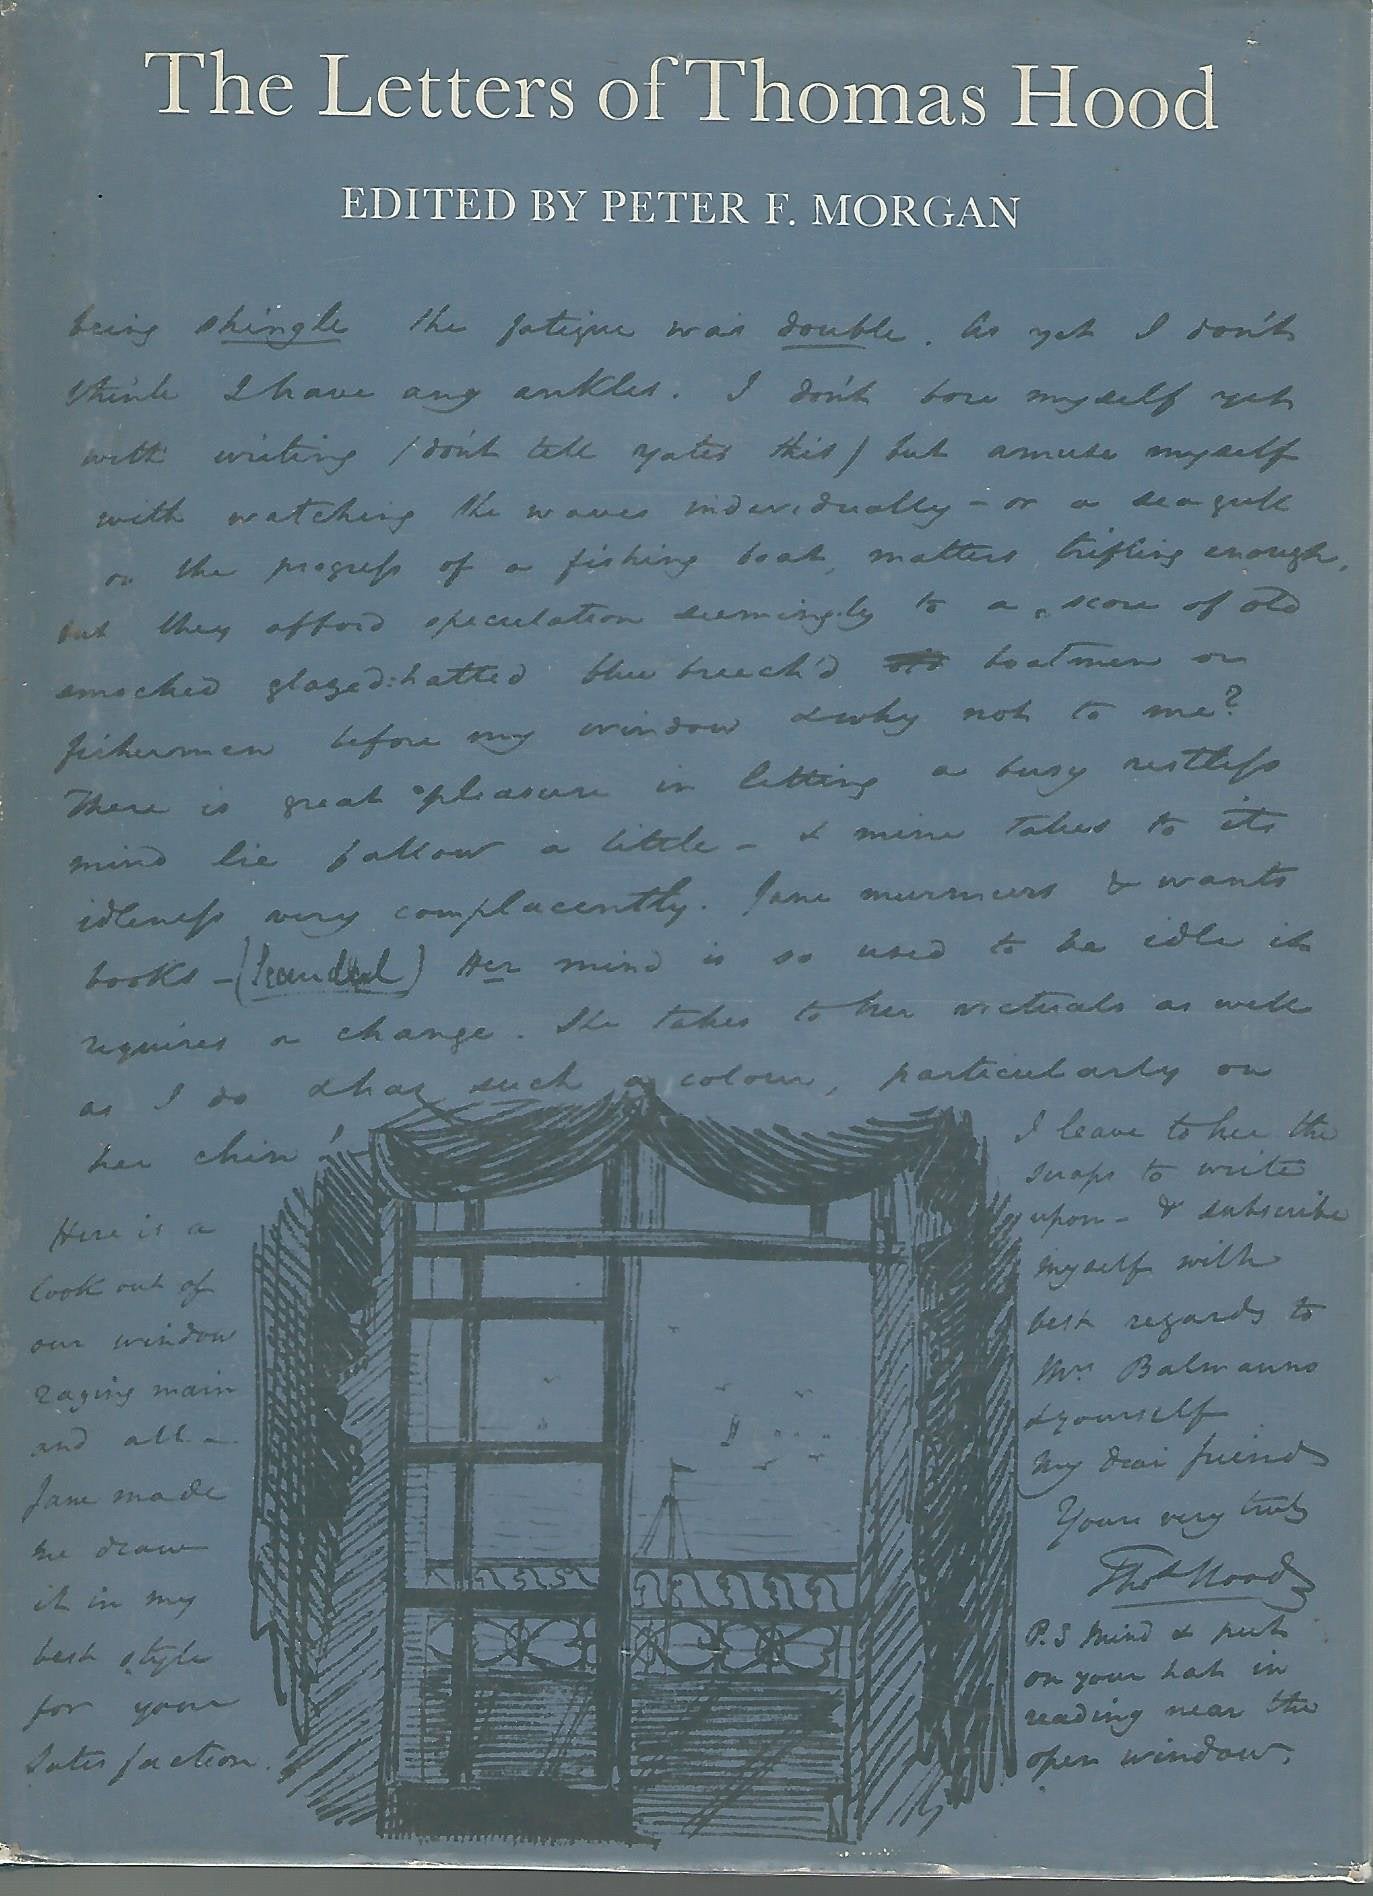 The Letters of Thomas Hood
EDITED BY PETER F. MORGAN
being shingle the fatigue was double. As yet I don't
think I have any ankles. I don't bore myself yet
with writing (don't tell Yates this) but amuse myself
with watching the waves individually – or a seagull
or the progress of a fishing boat, matters trifling enough,
but they afford speculation seemingly to a score of old
smocked glazed-hatted blue breech'd boatmen or
fishermen before my window & why not to me?
There is great pleasure in letting a busy restless
mind lie fallow a little – & mine takes to its
idleness very complacently. Jane murmurs & wants
books – (Scandal) Her mind is so used to be idle it
requires a change. She takes to her victuals as well
as I do & has such a colour, particularly on
her chin!
Here is a
look out of
our window
raging main
and all –
Jane made
me draw
it in my
best style
for your
satisfaction.
I leave to her the
snaps to write
upon – & subscribe
myself with
best regards to
Mrs Balmanno
& yourself
My dear friend
Yours very truly
Thos Hood
P.S Mind & put
on your hat in
reading near the
open window.